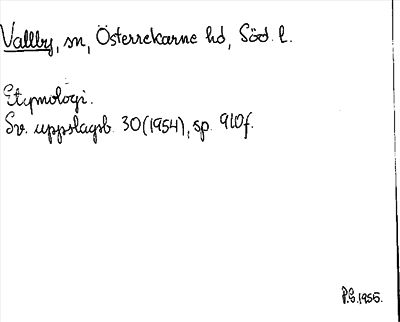 Vallby, sn, Österrekarne hd, Söd. l.
Etymologi.
Sv. uppslagsb. 30 (1954), sp. 910f.
P.S. 1956.